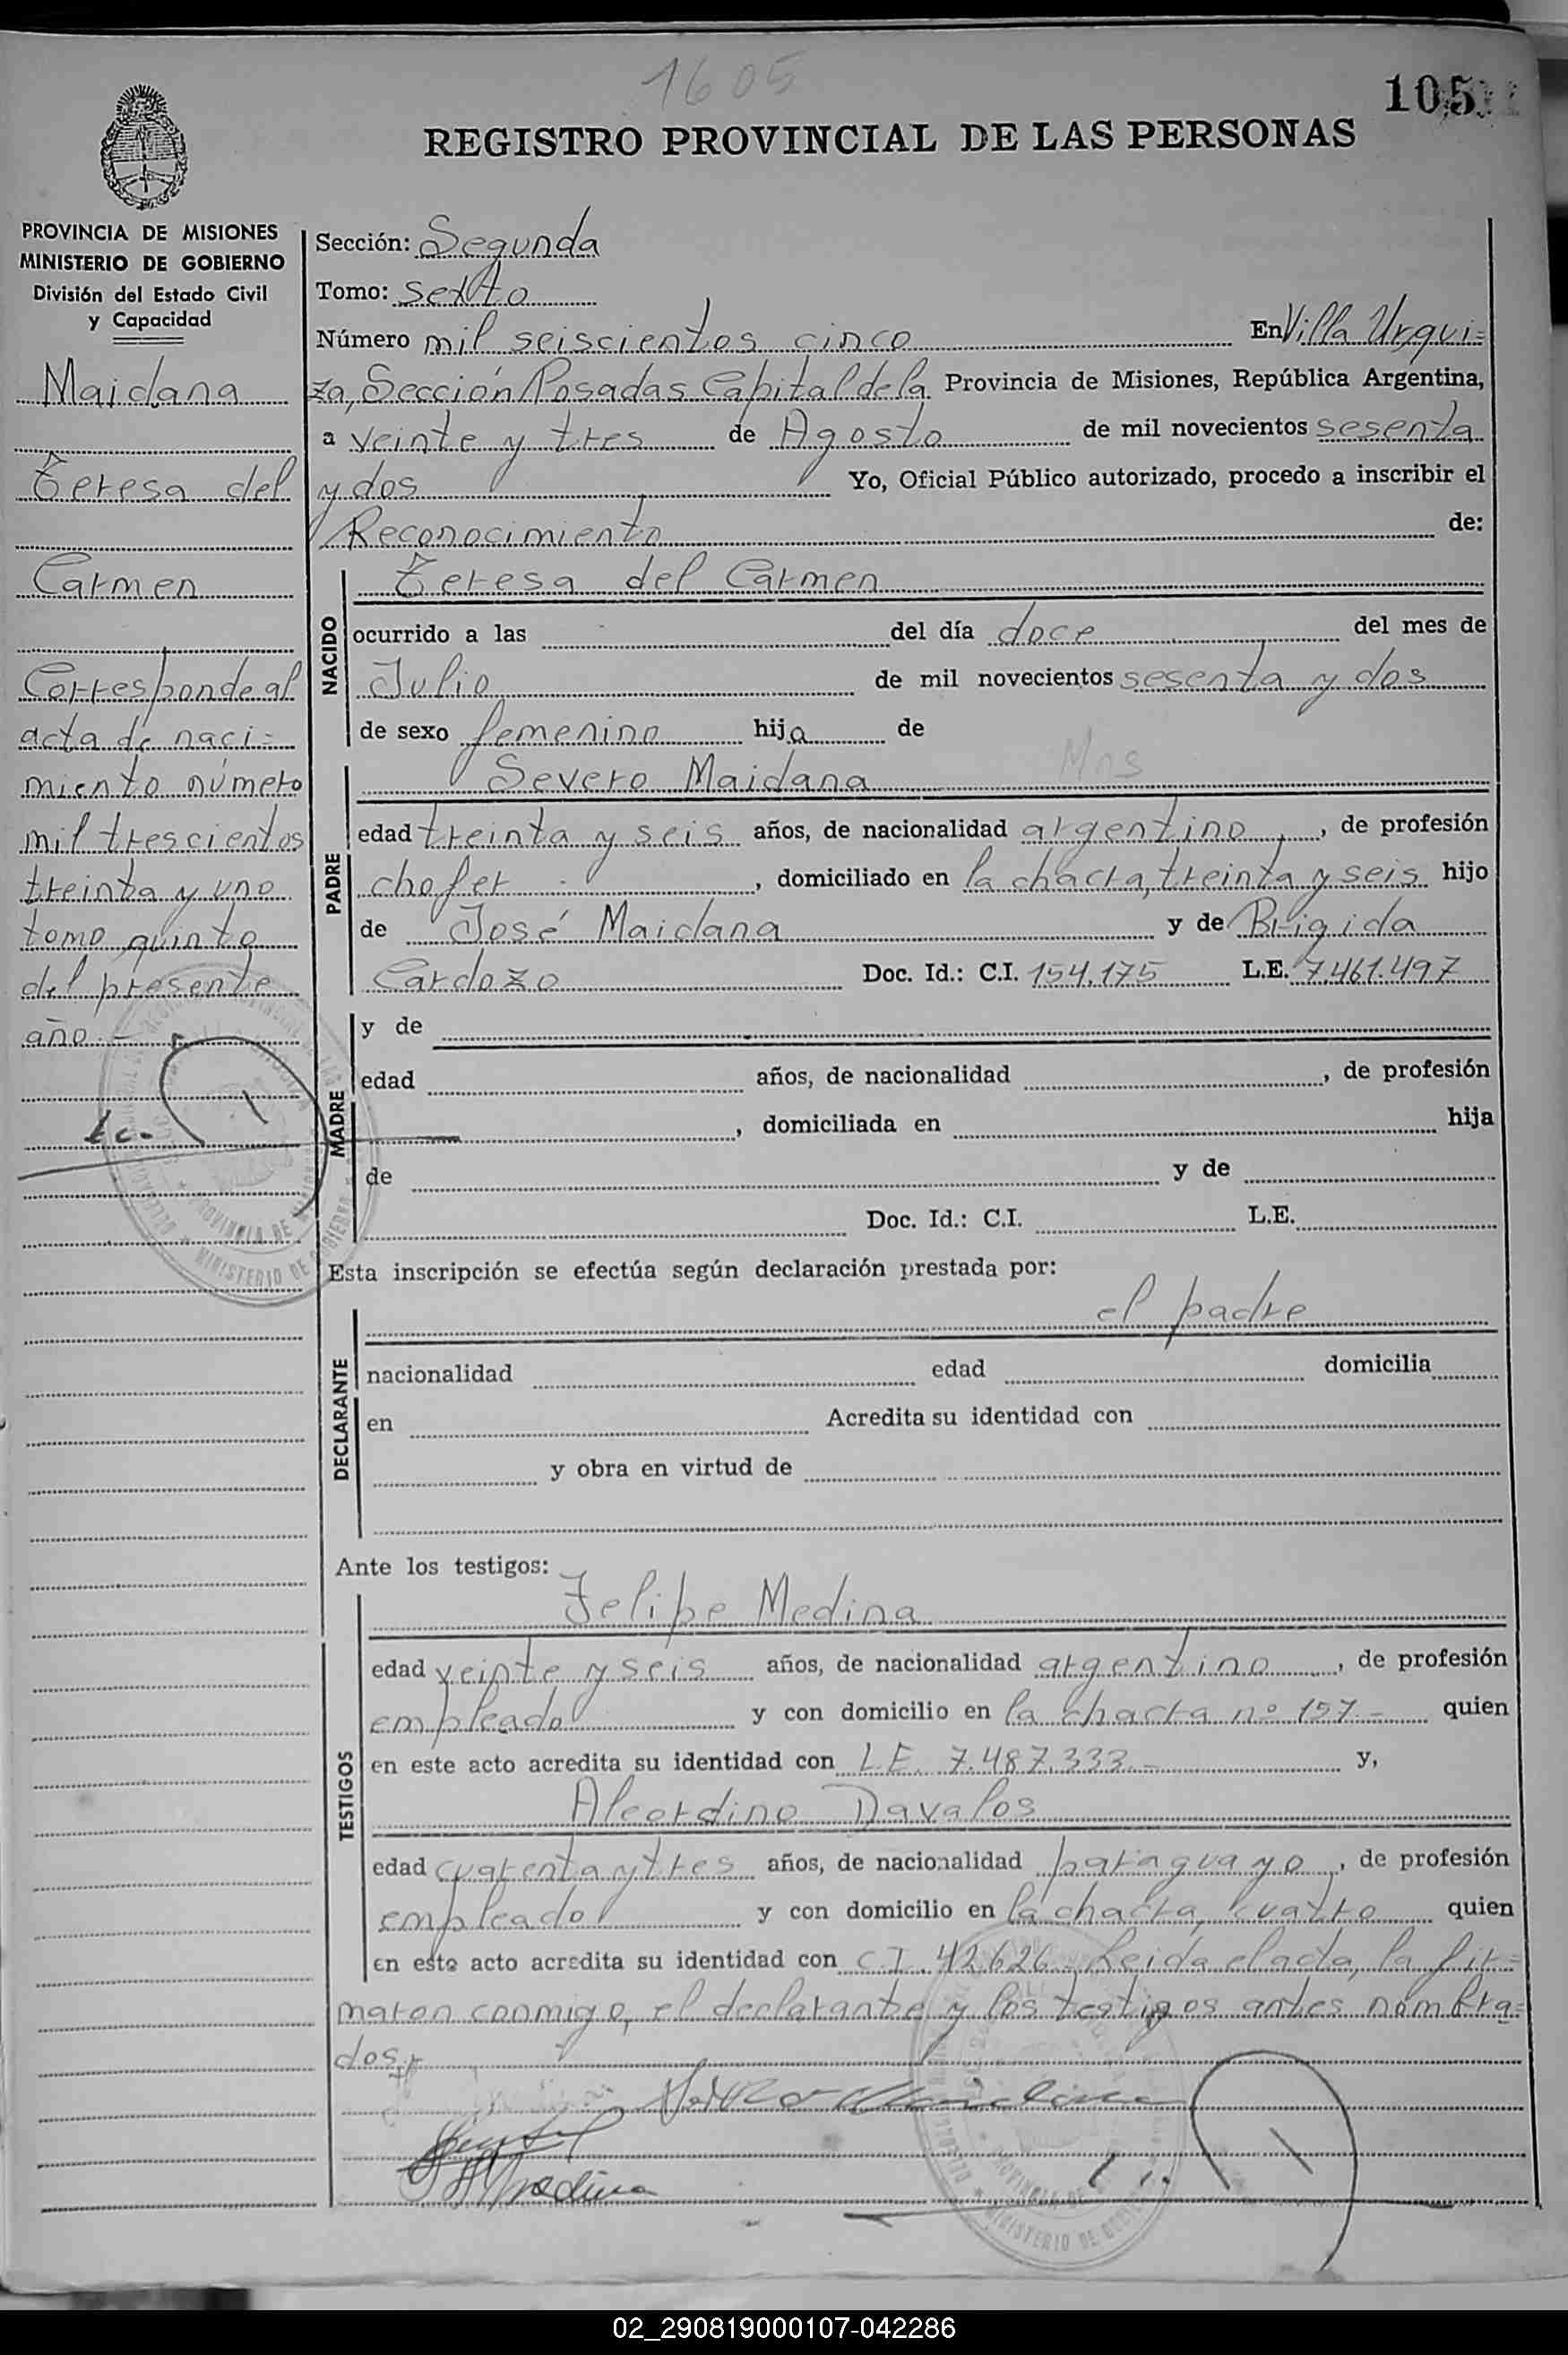 1605
105
REGISTRO PROVINCIAL DE LAS PERSONAS
PROVINCIA DE MISIONES
MINISTERIO DE GOBIERNO
División del Estado Civil
y Capacidad
Maidana
Teresa del
Carmen
Corresponde al
acta de naci=
miento número
mil trescientos
treinta y uno
tomo quinto
del presente
año.-
Sección: Segunda
Tomo: Sexto
Número mil seiscientos cinco En Villa Urqui=
za, Sección Posadas Capital de la Provincia de Misiones, República Argentina,
a veinte y tres de Agosto de mil novecientos sesenta
y dos Yo, Oficial Público autorizado, procedo a inscribir el
Reconocimiento de:
NACIDO
Teresa del Carmen
ocurrido a las del día doce del mes de
Julio de mil novecientos sesenta y dos
de sexo femenino hija de
PADRE
Severo Maidana Mns
edad treinta y seis años, de nacionalidad argentino, de profesión
chofer, domiciliado en la chacra, treinta y seis hijo
de José Maidana y de Brigida
Cardozo Doc. Id.: C.I. 154.175 L.E. 7.461.497
MADRE
y de
edad años, de nacionalidad , de profesión
, domiciliada en hija
de y de
Doc. Id.: C.I. L.E.
Esta inscripción se efectúa según declaración prestada por:
el padre
DECLARANTE
nacionalidad edad domicilia
en Acredita su identidad con
y obra en virtud de
Ante los testigos:
TESTIGOS
Felipe Medina
edad veinte y seis años, de nacionalidad argentino, de profesión
empleado y con domicilio en la chacra nº 157- quien
en este acto acredita su identidad con L.E. 7.487.333.- y,
Alcordino Davalos
edad cuarenta y tres años, de nacionalidad paraguayo, de profesión
empleado y con domicilio en la chacra, cuatro quien
en este acto acredita su identidad con C.I. 42.626. Leída el acta, la fir=
maron conmigo, el declarante y los testigos antes nombra=
dos.
Severo Maidana
Medina
02_290819000107-042286